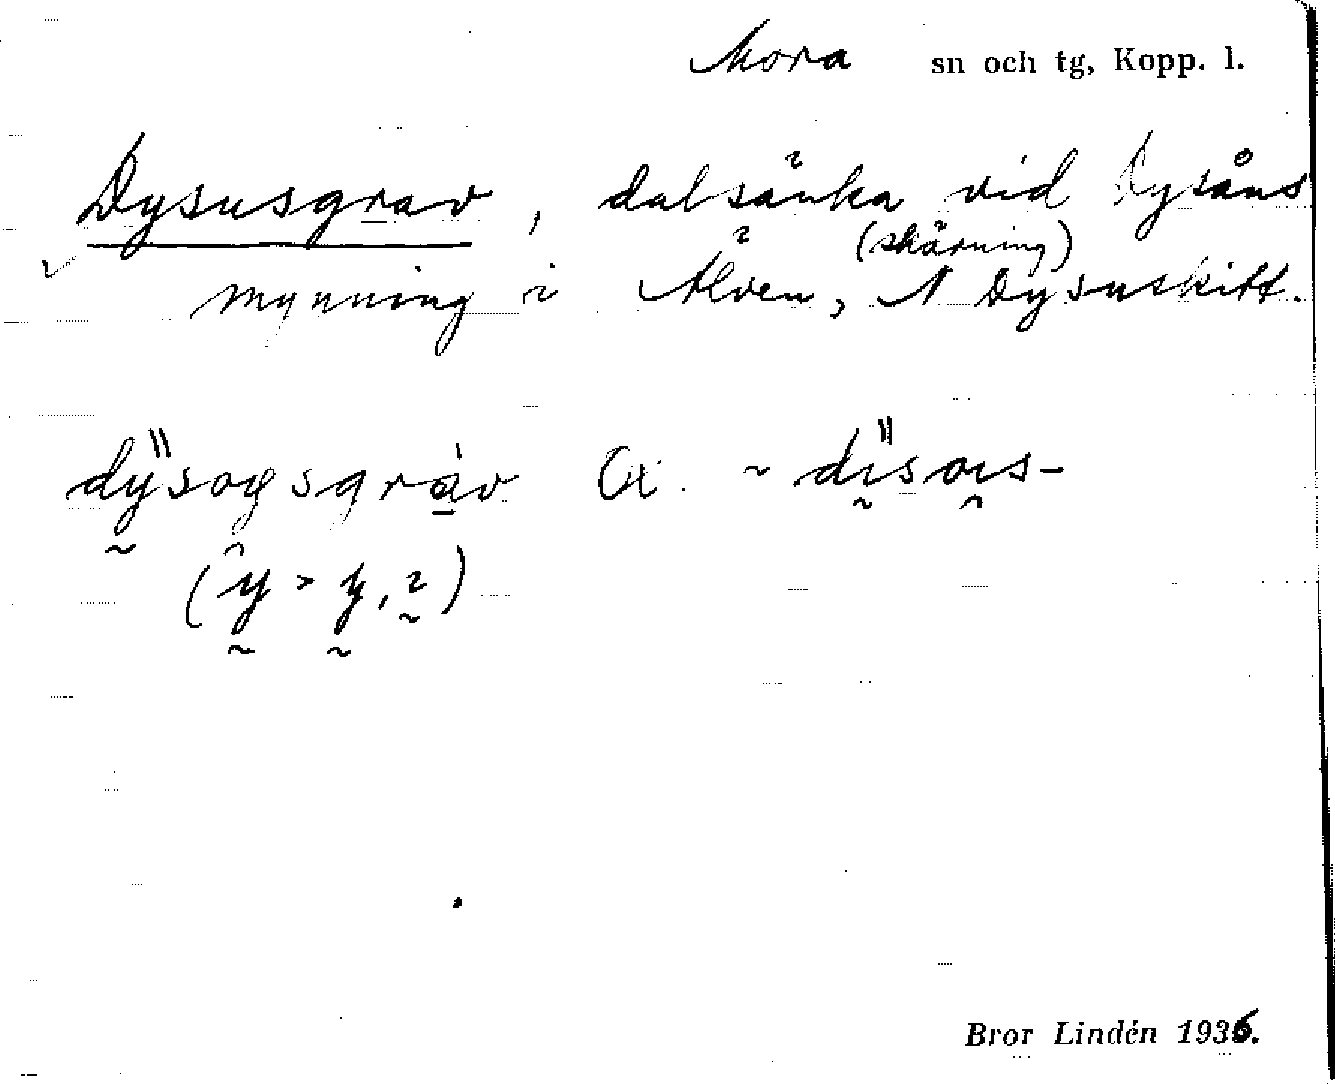 Mora sn och tg, Kopp. l.
Dysusgrav, dalsänka vid Dysåns
(skärning)
mynning i Älven, N Dysuskitt.
dy̰sogsgràv ~ dḭsoıs-
(y > y̰, ḭ)
Bror Lindén 1936.